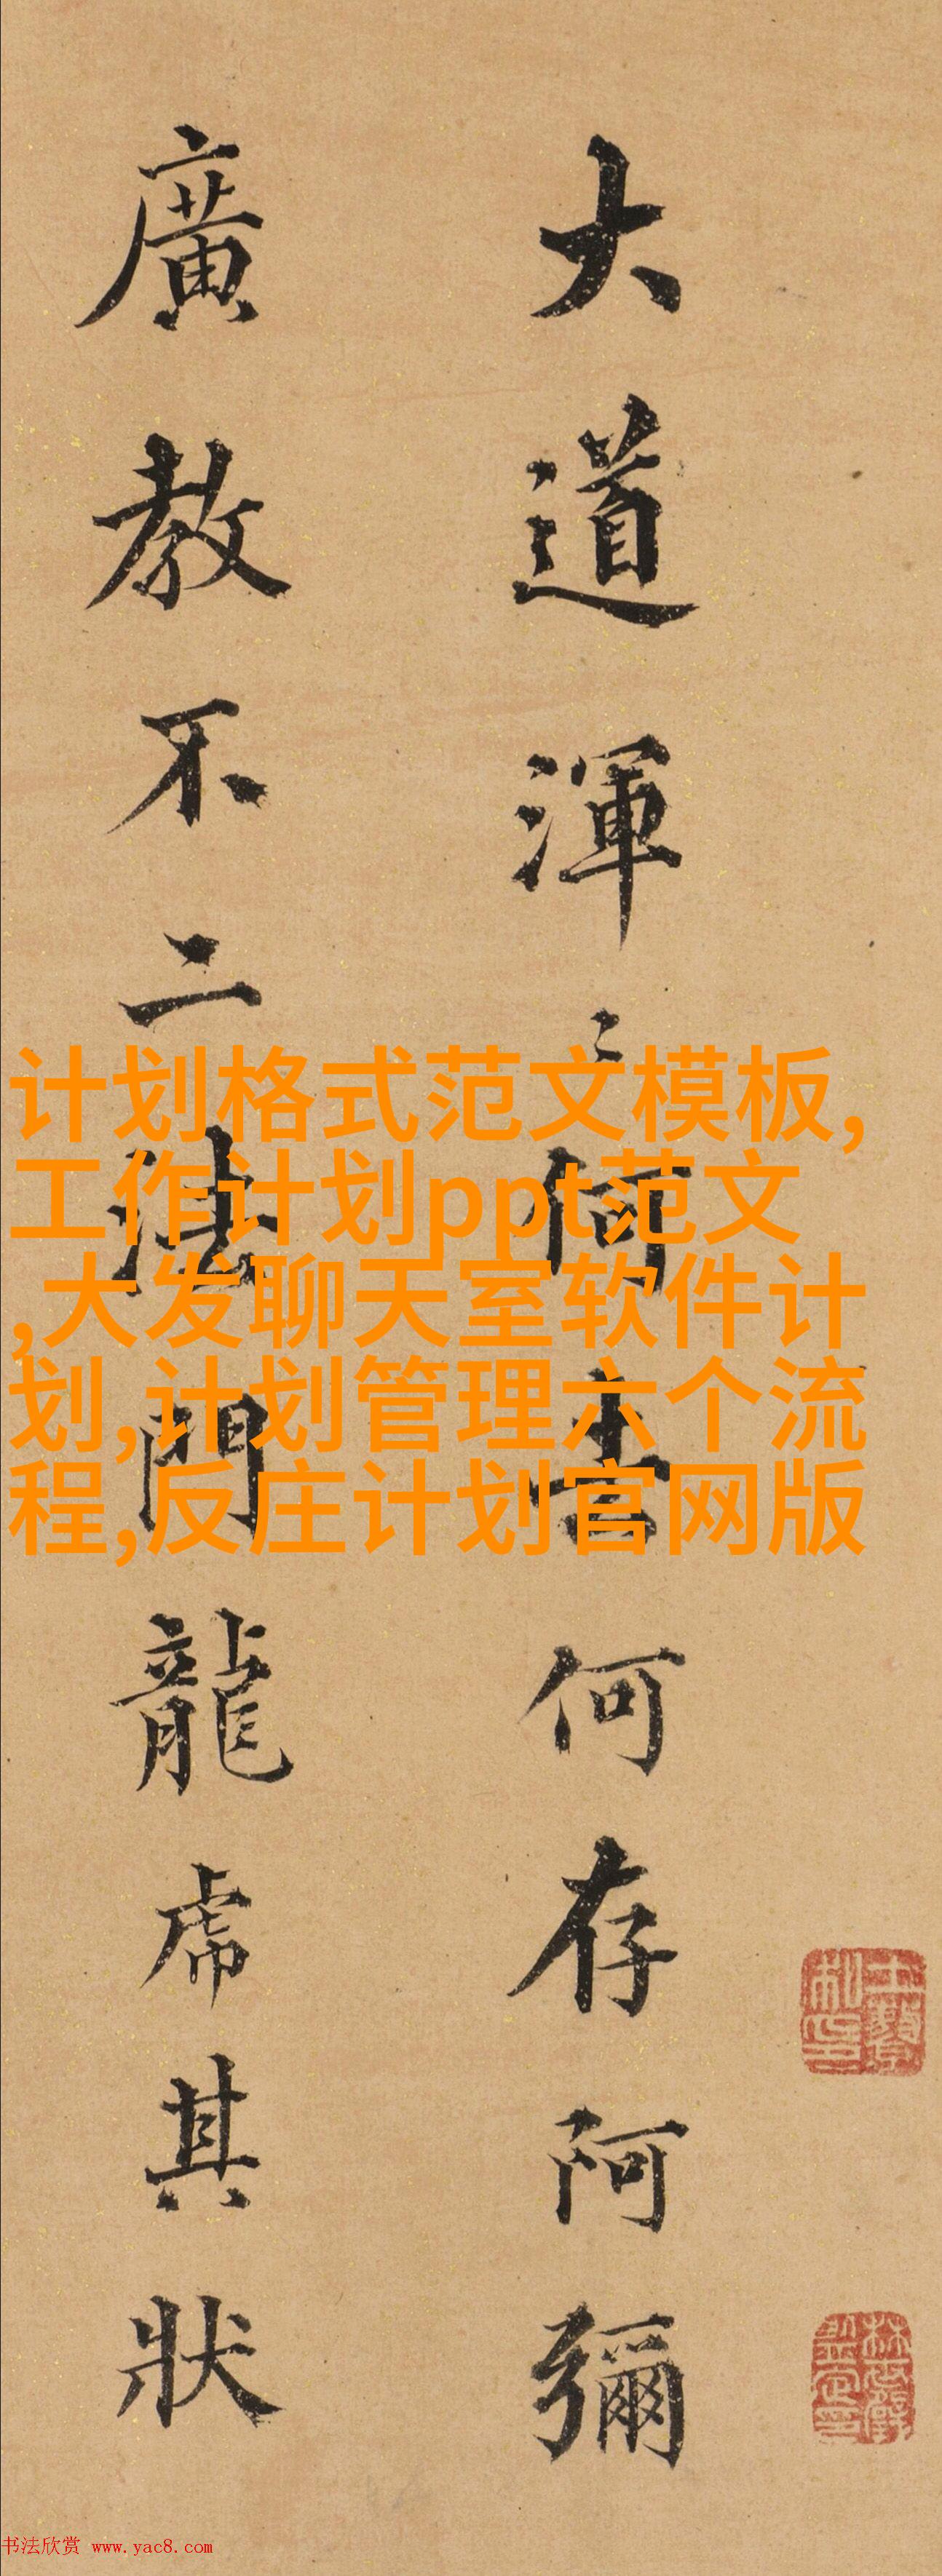 大道渾〻何去何存阿彌
廣教不二法門龍虎其狀
计划格式范文模板,
工作计划ppt范文
,大发聊天室软件计
划,计划管理六个流
程,反庄计划官网版
书法欣赏 www.yac8.com